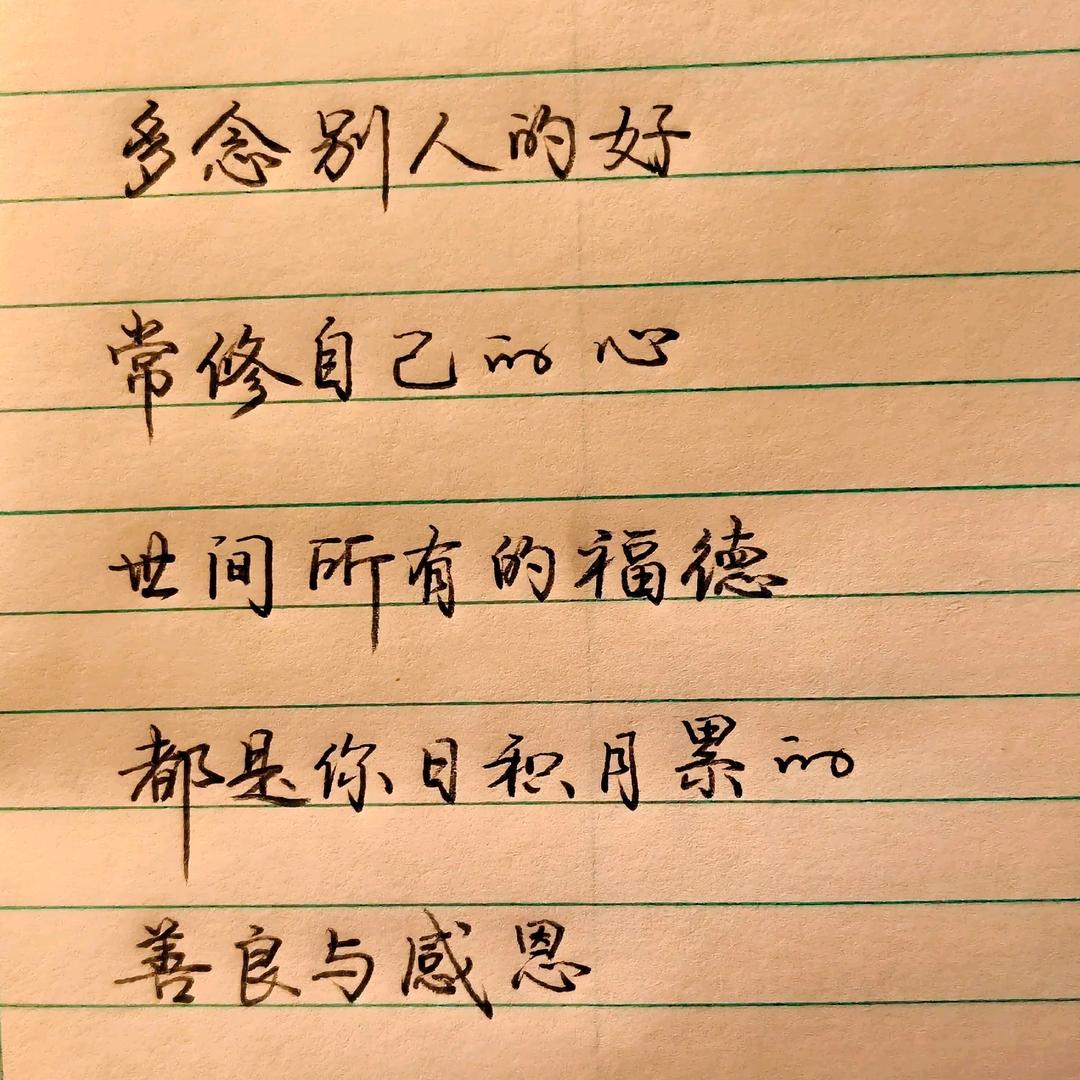 多念别人的好
常修自己的心
世间所有的福德
都是你日积月累的
善良与感恩